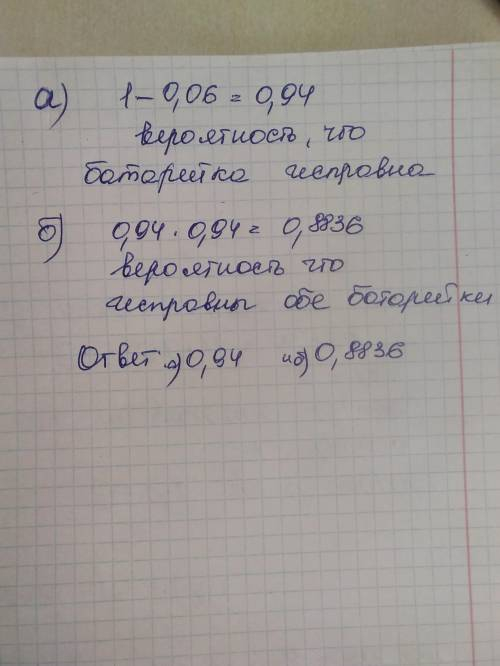 а) 1 - 0,06 = 0,94
вероятность, что
батарейка исправна
б) 0,94 · 0,94 = 0,8836
вероятность что
исправны обе батарейки
Ответ а) 0,94 и б) 0,8836